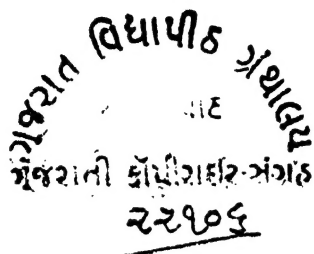 ગૂજરાત વિદ્યાપીઠ ગ્રંથાલય
ગુજરાતી કૉપીરાઈટ-સંગ્રહ
૨૨૧૦૬